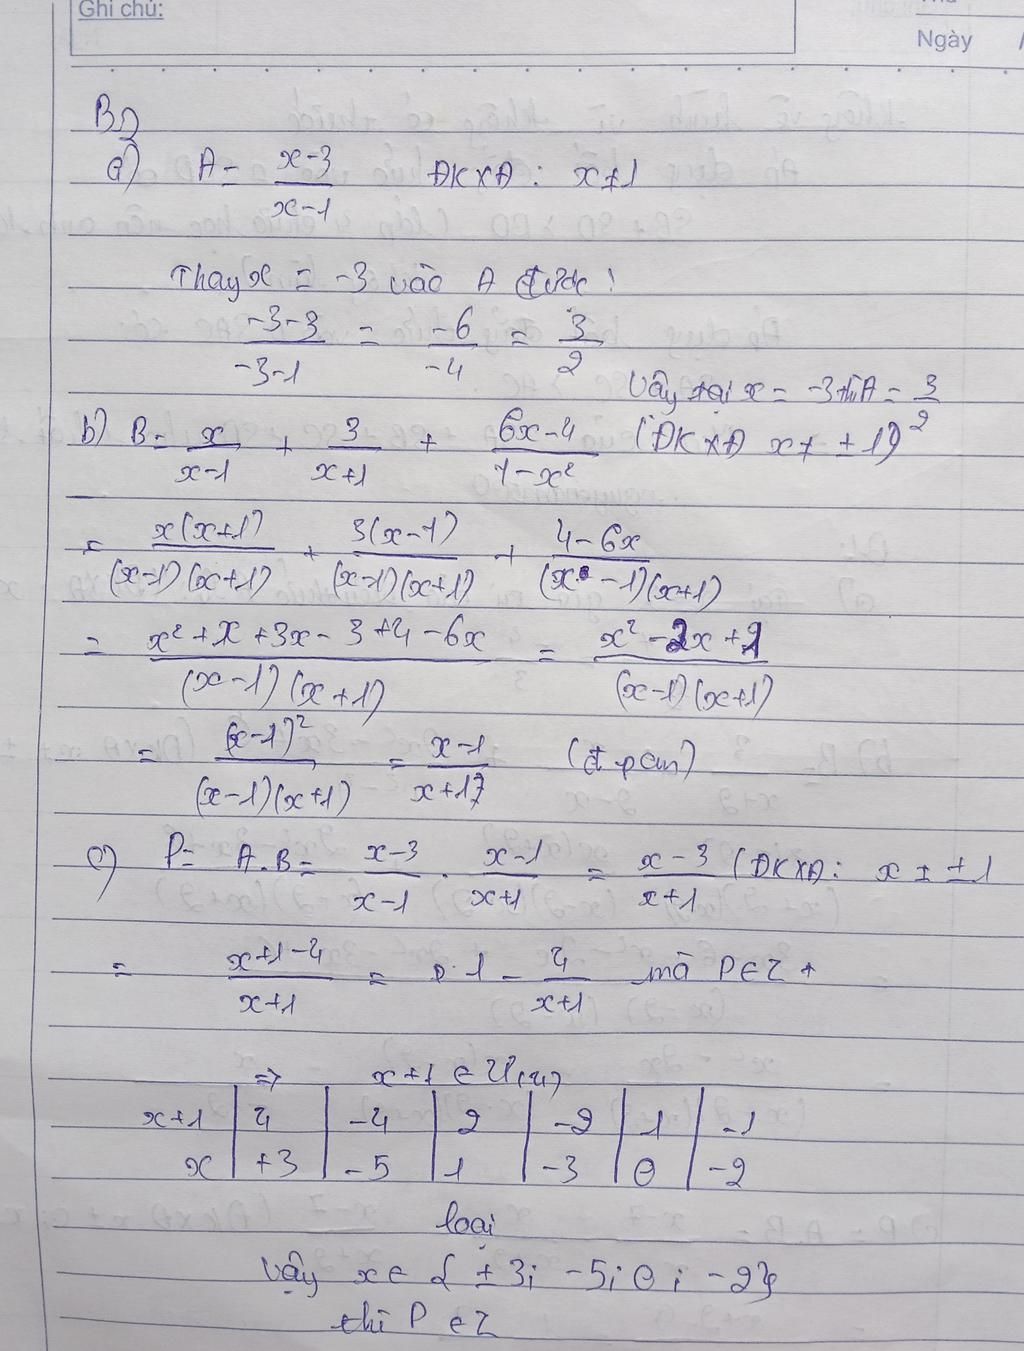 Ghi chú:
Ngày /
B1)
a) A = (x-3)/(x-1) ĐKXĐ: x ≠ 1
Thay x = -3 vào A được:
(-3-3)/(-3-1) = (-6)/(-4) = 3/2
Vậy tại x = -3 thì A = 3/2
b) B = x/(x-1) + 3/(x+1) + (6x-4)/(1-x²) (ĐKXĐ x ≠ ±1)
= x(x+1)/((x-1)(x+1)) + 3(x-1)/((x-1)(x+1)) + (4-6x)/((x-1)(x+1))
= (x²+x+3x-3+4-6x)/((x-1)(x+1)) = (x²-2x+1)/((x-1)(x+1))
= (x-1)²/((x-1)(x+1)) = (x-1)/(x+1) (đpcm)
c) P = A.B = (x-3)/(x-1) . (x-1)/(x+1) = (x-3)/(x+1) (ĐKXĐ: x ≠ ±1
= (x+1-4)/(x+1) = 1 - 4/(x+1) mà P∈Z
=> x+1 ∈ Ư(4)
x+1 | 4 | -4 | 2 | -2 | 1 | -1
x | +3 | -5 | 1 | -3 | 0 | -2
loại
Vậy x∈ { ±3; -5; 0; -2}
thì P ∈ Z